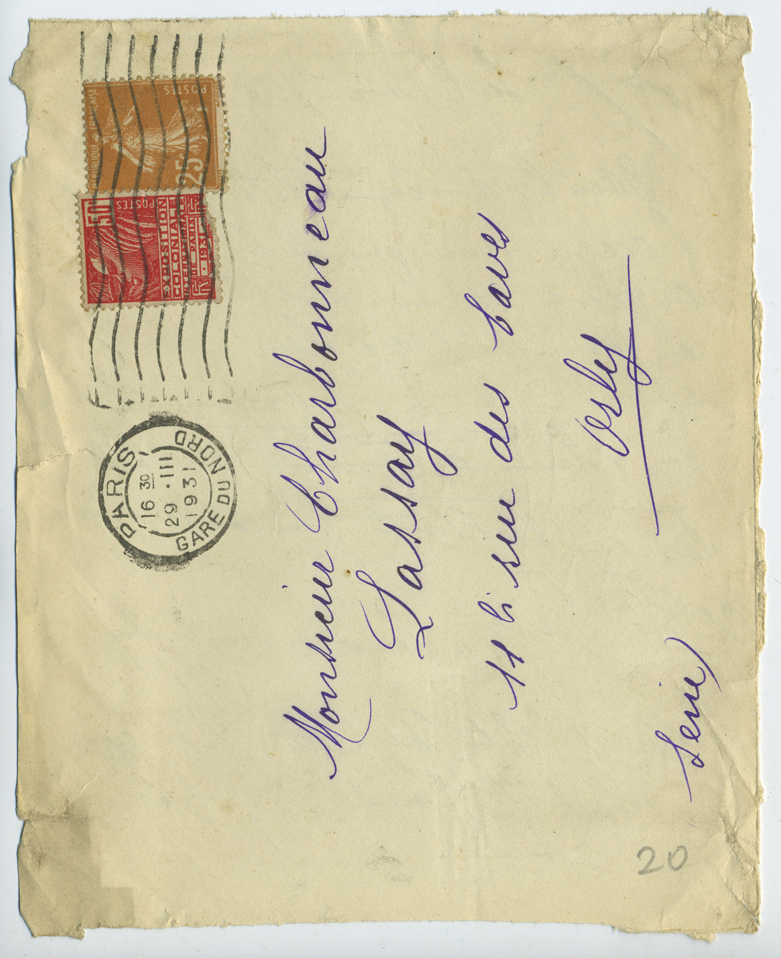 RÉPUBLIQUE FRANÇAISE
POSTES
25c
50c
POSTES
EXPOSITION
COLONIALE
INTERNATIONALE
PARIS
1931
PARIS
16 30
29 • III
1931
GARE DU NORD
Monsieur Charbonneau
Lassay
11 bi rue des Caves
Orly
Seine)
20